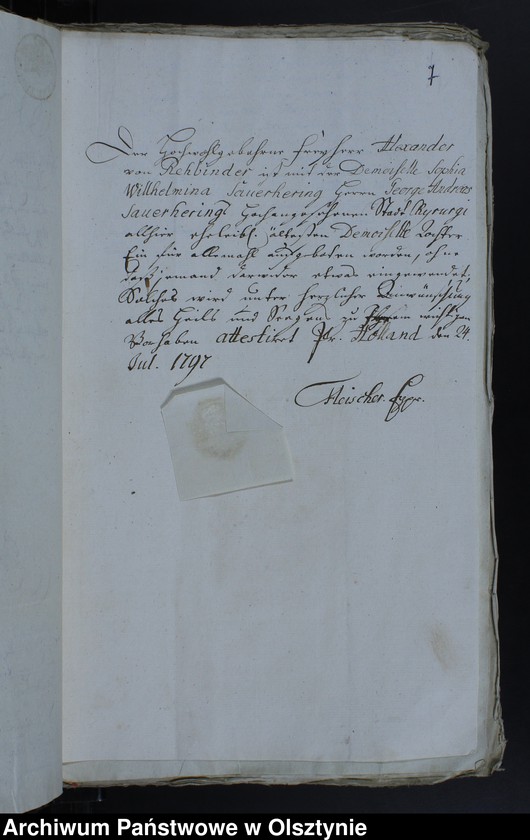 7
Der Hochwohlgebohrne Freyherr Alexander
von Rehbinder ist mit der Demoiselle Sophia
Willhelmina Sauerhering Herrn George Andreas
Sauerherings Hochangesehenen Stadt Chyrurgi
allhier eheleibl. ältesten Demoiselle Tochter
Ein für allemahl aufgeboten worden, ohne
daß jemand darwider etwas eingewandt,
Solches wird unter herzlicher Anwünschung
alles Heils und Seegens zu wichtigen
Vorhaben attestiret Pr. Holland den 24.
Jul. 1797
Fleischer.
Archiwum Państwowe w Olsztynie